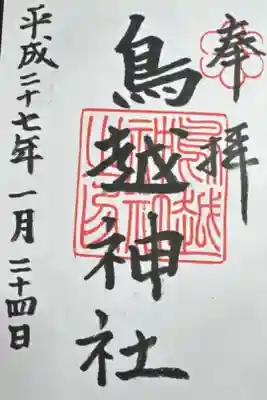 奉拝
鳥越神社
平成二十七年一月二十四日